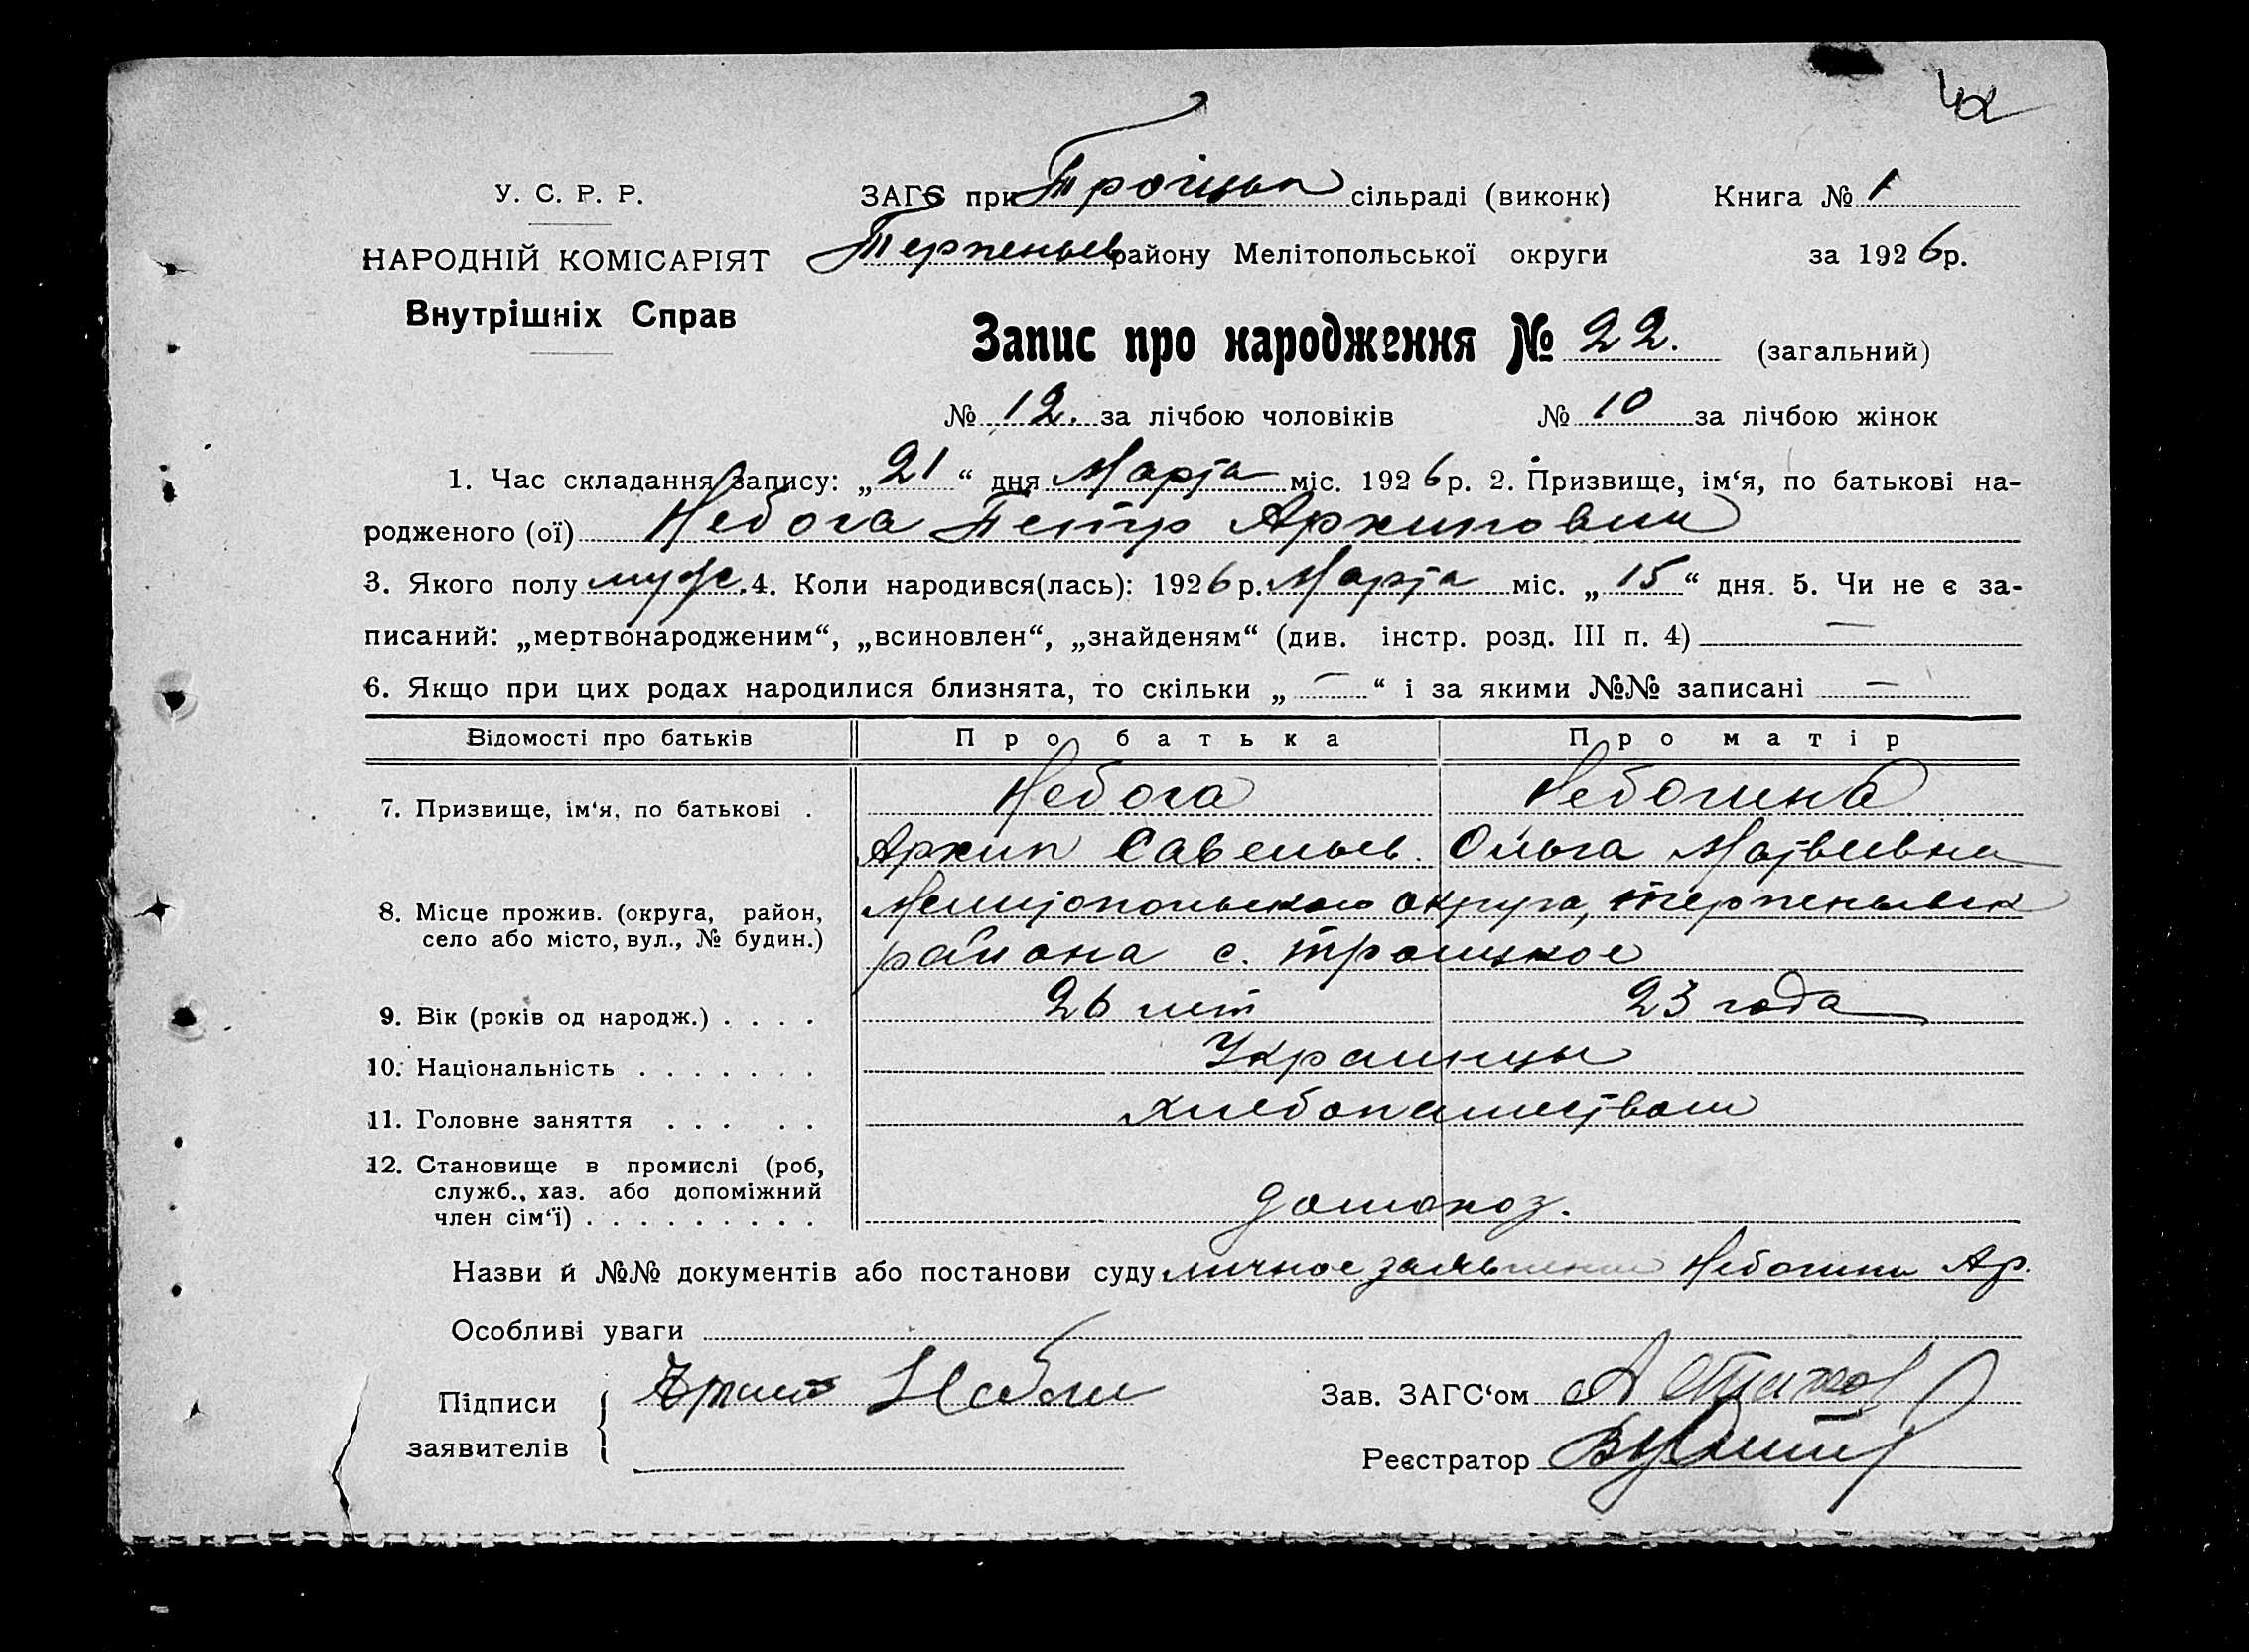 42
У. С. Р. Р. ЗАГС при Троицьк сільраді (виконк) Книга № 1
НАРОДНІЙ КОМІСАРІЯТ Терпеньев району Мелітопольської округи за 1926 р.
Внутрішніх Справ
Запис про народження № 22. (загальний)
№ 12. за лічбою чоловіків № 10 за лічбою жінок
1. Час складання запису: „21“ дня Марта міс. 1926 р. 2. Призвище, ім‘я, по батькові на-
родженого (ої) Небога Петр Архипович
3. Якого полу муж. 4. Коли народився(лась): 1926 р. Марта міс. „15“ дня. 5. Чи не є за-
писаний: „мертвонародженим“, „всиновлен“, „знайденям“ (див. інстр. розд. III п. 4) —
6. Якщо при цих родах народилися близнята, то скільки „—“ і за якими №№ записані —
Відомості про батьків Про батька Про матір
7. Призвище, ім‘я, по батькові . Небога Небогина
Архип Савельев. Ольга Матвеевна
8. Місце прожив. (округа, район, Мелитопольского округа, терпеньевск
село або місто, вул., № будин.) района с. троицкое
9. Вік (років од народж.) . . . . 26 лет 23 года
10. Національність . . . . . . . Украинцы
11. Головне заняття . . . . . хлебопашеством
12. Становище в промислі (роб,
служб., хаз. або допоміжний
член сім‘ї) . . . . . . . . . домохоз.
Назви й №№ документів або постанови суду личное заявление Небогины Ар.
Особливі уваги
Підписи Зав. ЗАГС‘ом
заявителів Реєстратор